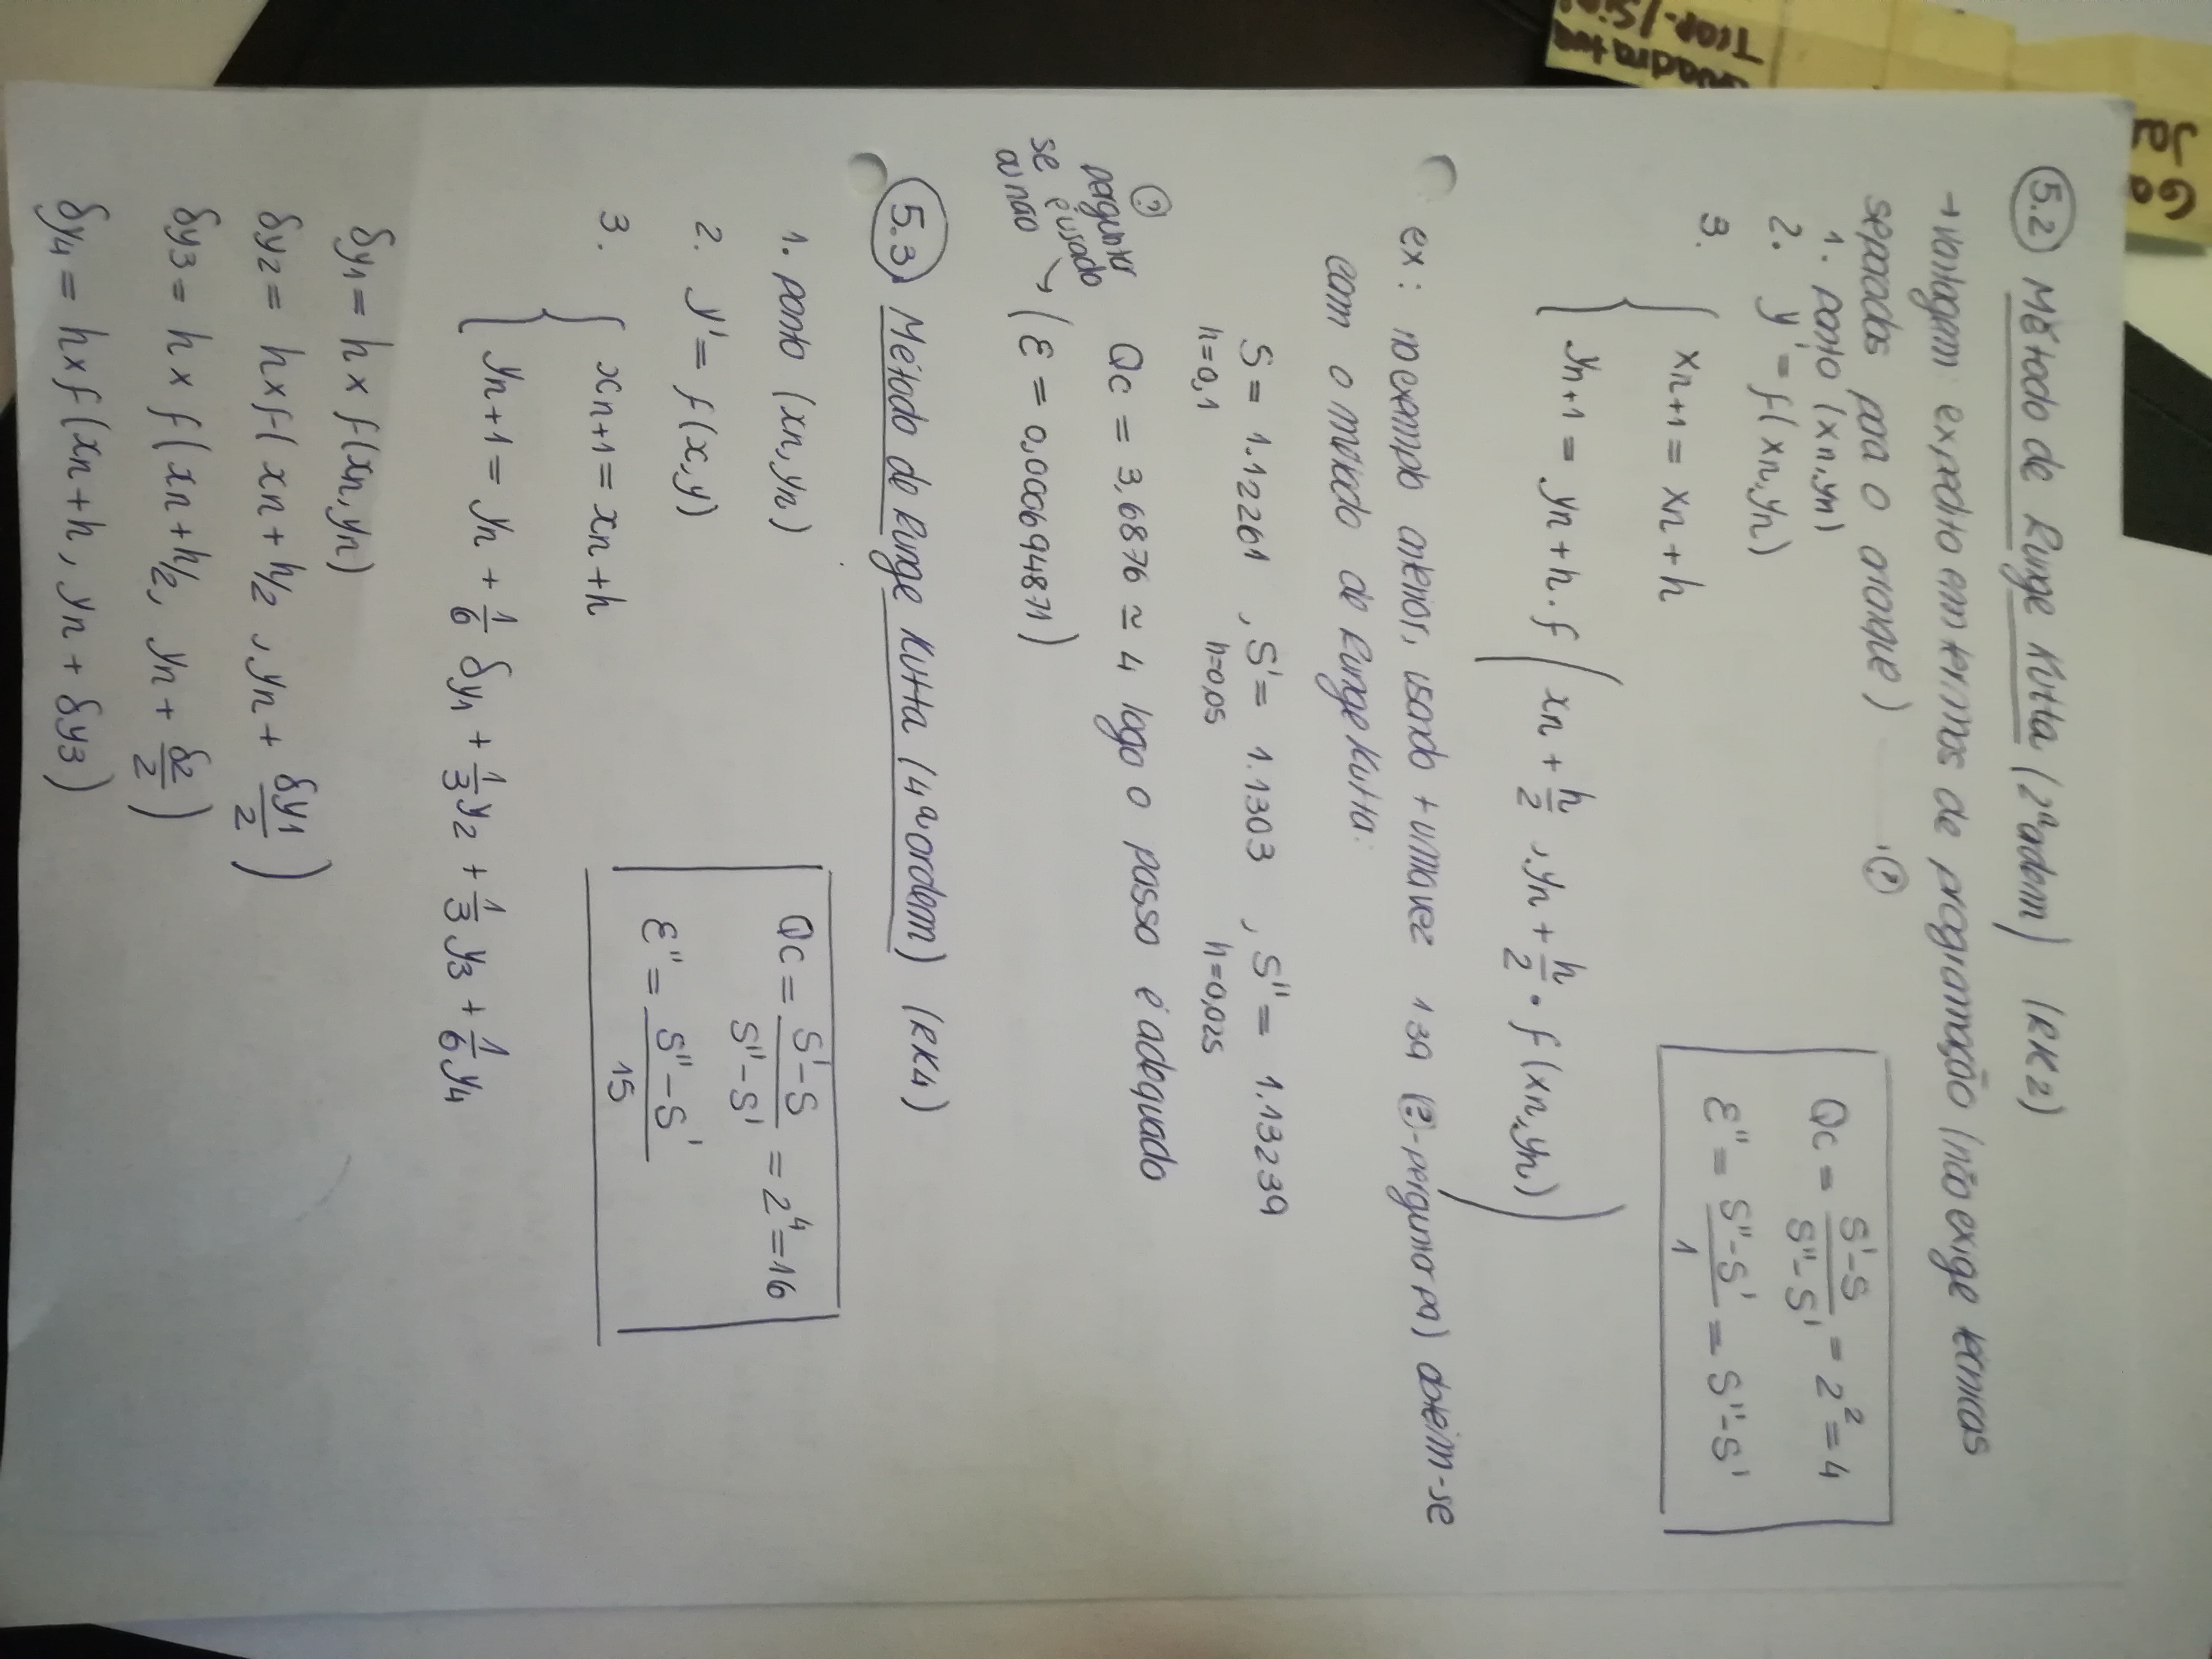 Ga
Ja
Quadratur
Trap./Si
5.2 Método de Runge Kutta (2ª ordem) (RK2)
→ vantagem expedito em termos de programação (não exige técnicas
separadas para o arranque) ?
1. ponto (xn, yn)
2. y' = f(xn, yn)
3. { xn+1 = xn + h
yn+1 = yn + h . f ( xn + h/2 , yn + h/2 . f(xn, yn) )
Qc = (S'-S)/(S''-S') = 2² = 4
ε'' = (S''-S')/1 = S''-S'
ex: no exemplo anterior, usando + uma vez 139 (?-perguntar pq) obtêm-se
com o método de Runge Kutta:
S = 1.12261 , S' = 1.1303 , S'' = 1.13239
h=0,1 h=0,05 h=0,025
Qc = 3,6876 ≃ 4 logo o passo é adequado
? perguntar
se é usado
ou não → (ε = 0,000694871)
5.3 Método de Runge Kutta (4ª ordem) (RK4)
1. ponto (xn, yn)
2. y' = f(x, y)
3. { xn+1 = xn + h
yn+1 = yn + 1/6 δy1 + 1/3 y2 + 1/3 y3 + 1/6 y4
Qc = (S'-S)/(S''-S') = 2⁴ = 16
ε'' = (S''-S')/15
δy1 = h × f(xn, yn)
δy2 = h × f( xn + h/2 , yn + δy1/2 )
δy3 = h × f( xn + h/2, yn + δ2/2 )
δy4 = h × f(xn + h, yn + δy3)